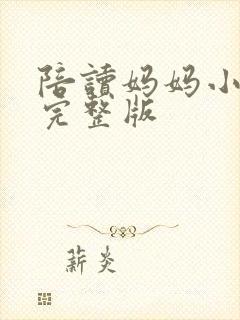 陪讀妈妈小
完整版
薪炎